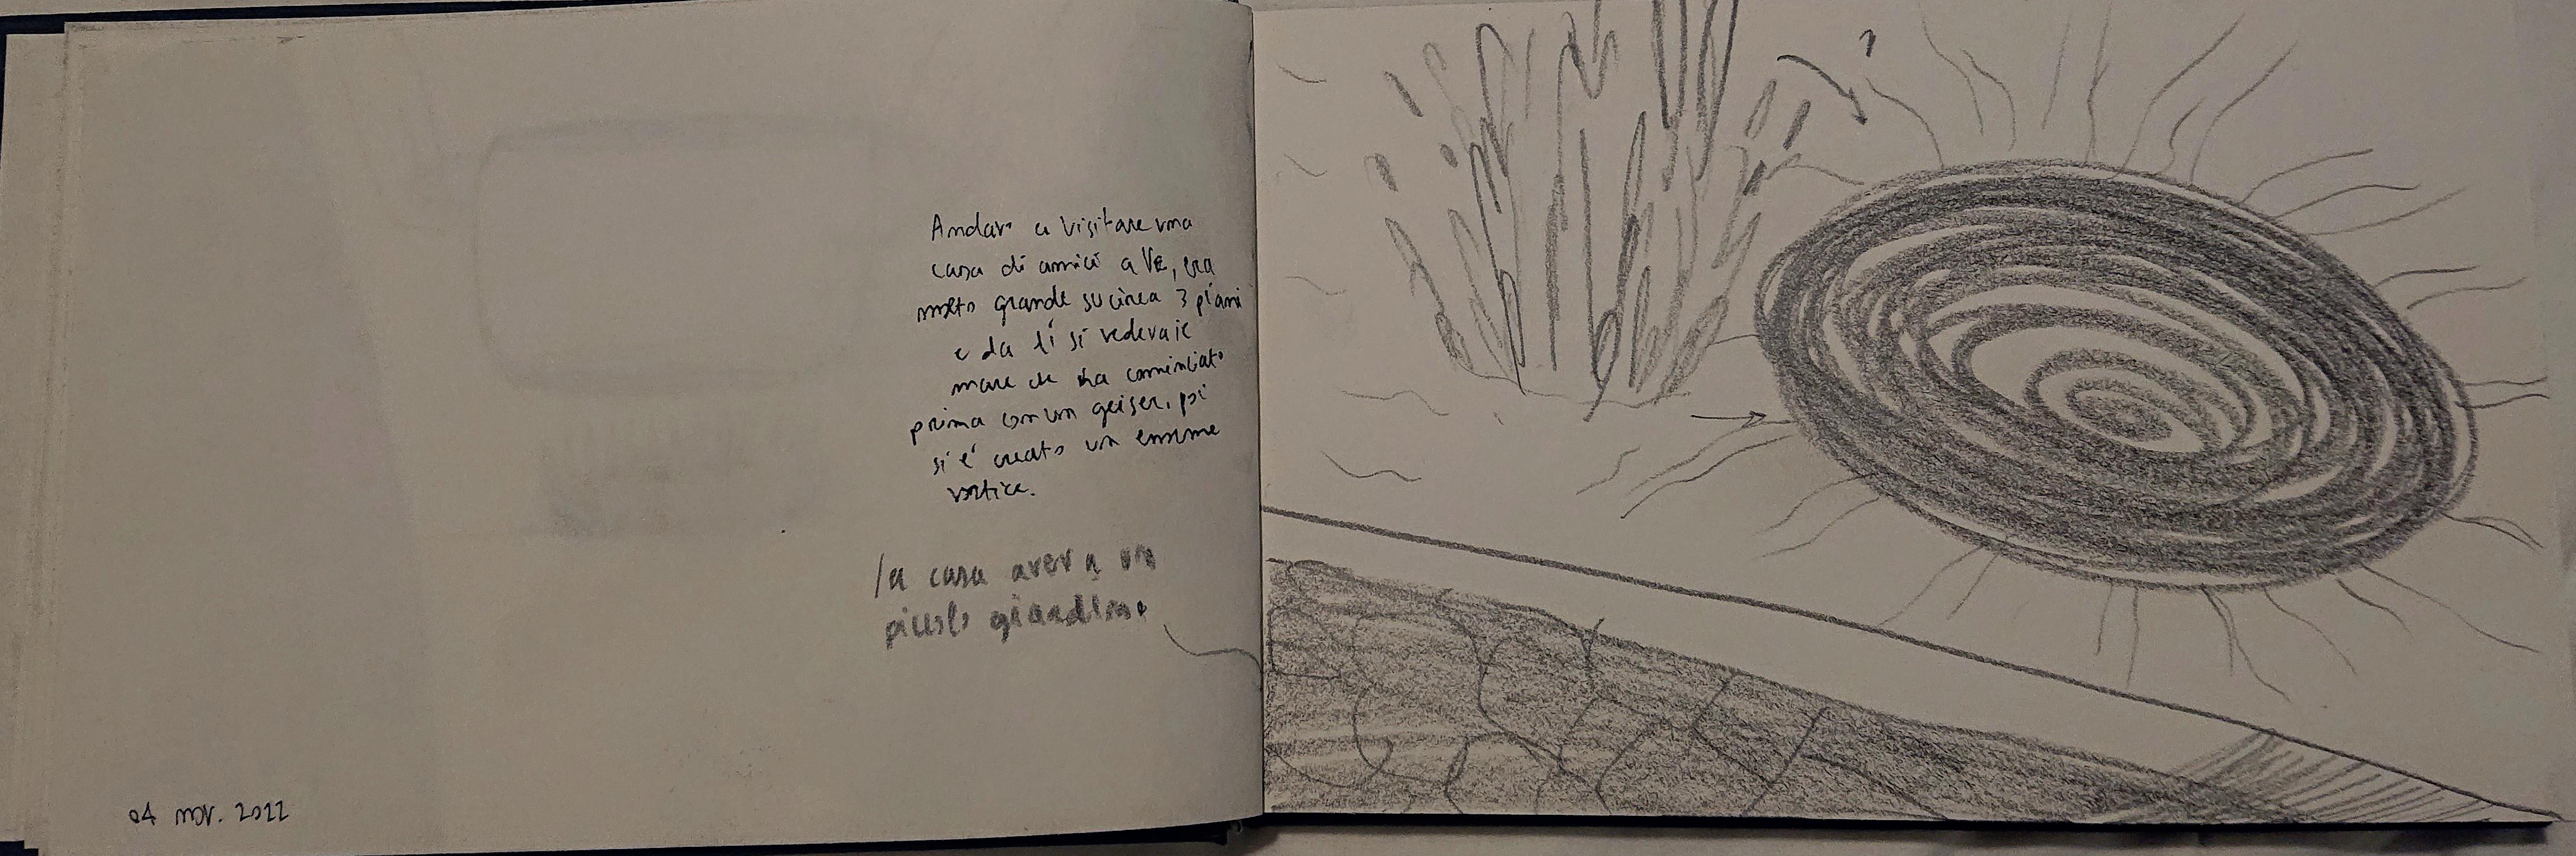 Andavo a visitare una
casa di amici a VE, era
molto grande su circa 3 piani
e da lì si vedeva il
mare che ha cominciato
prima con un geiser, poi
si è creato un enorme
vortice.
la casa aveva un
piccolo giardino
04 nov. 2022
?